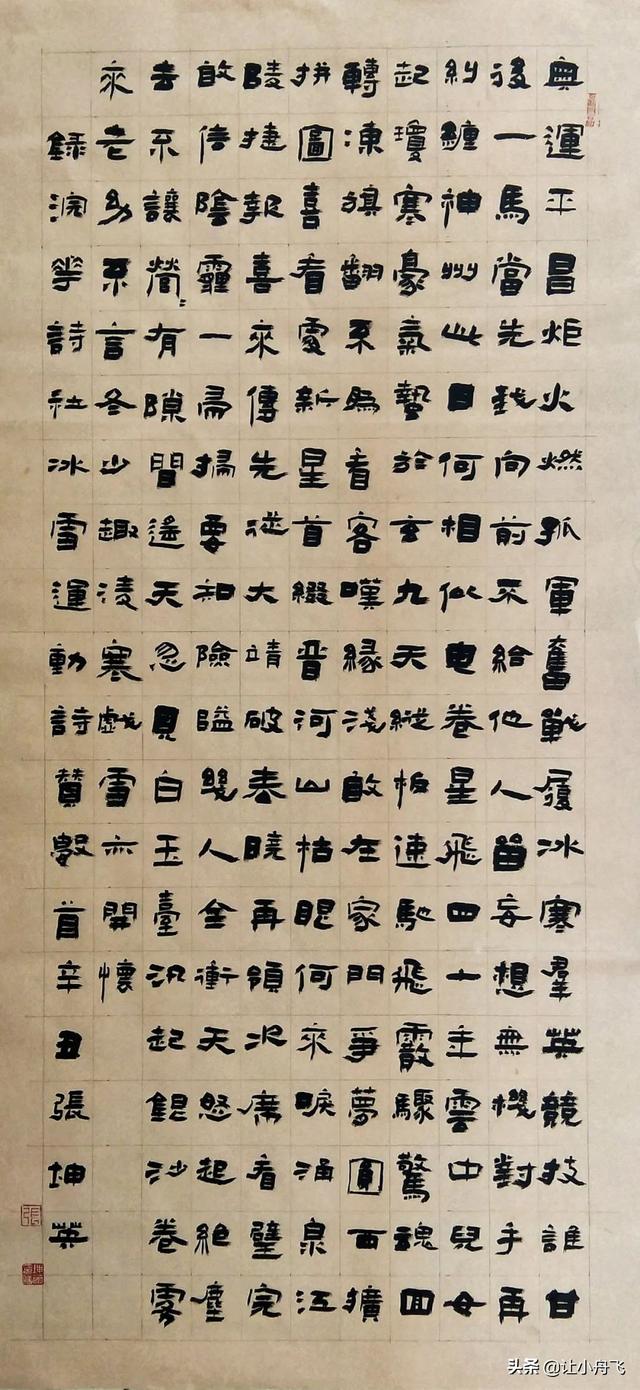 奥運平昌炬火燃孤軍奮戰履冰寒羣英競技誰甘
後一馬當先我向前不給他人留妄想無機對手再
糾纏神州此日何相似電卷星飛四十年雲中兒女
起瓊寒豪氣蟄於玄九天縱板連馳飛霰驟驚魂回
轉凍旗翻不為看客嘆緣淺敢在家門爭夢圓西擴
拼圖喜看處新星首綴晉河山枯眼何來淚涌泉江
陵捷報喜來傳先從大靖破春曉再領冰席看璧完
敢倚陰霾一帚掃要知險隘幾人全衝天怒起絕塵
去不讓營〻有隙間遙天忽見白玉臺汎起銀沙卷雾
來老幼不言冬少趣凌寒戲雪亦開懷
錄浣花詩社冰雪運動詩贊數首辛丑張坤英
头条 @让小舟飞